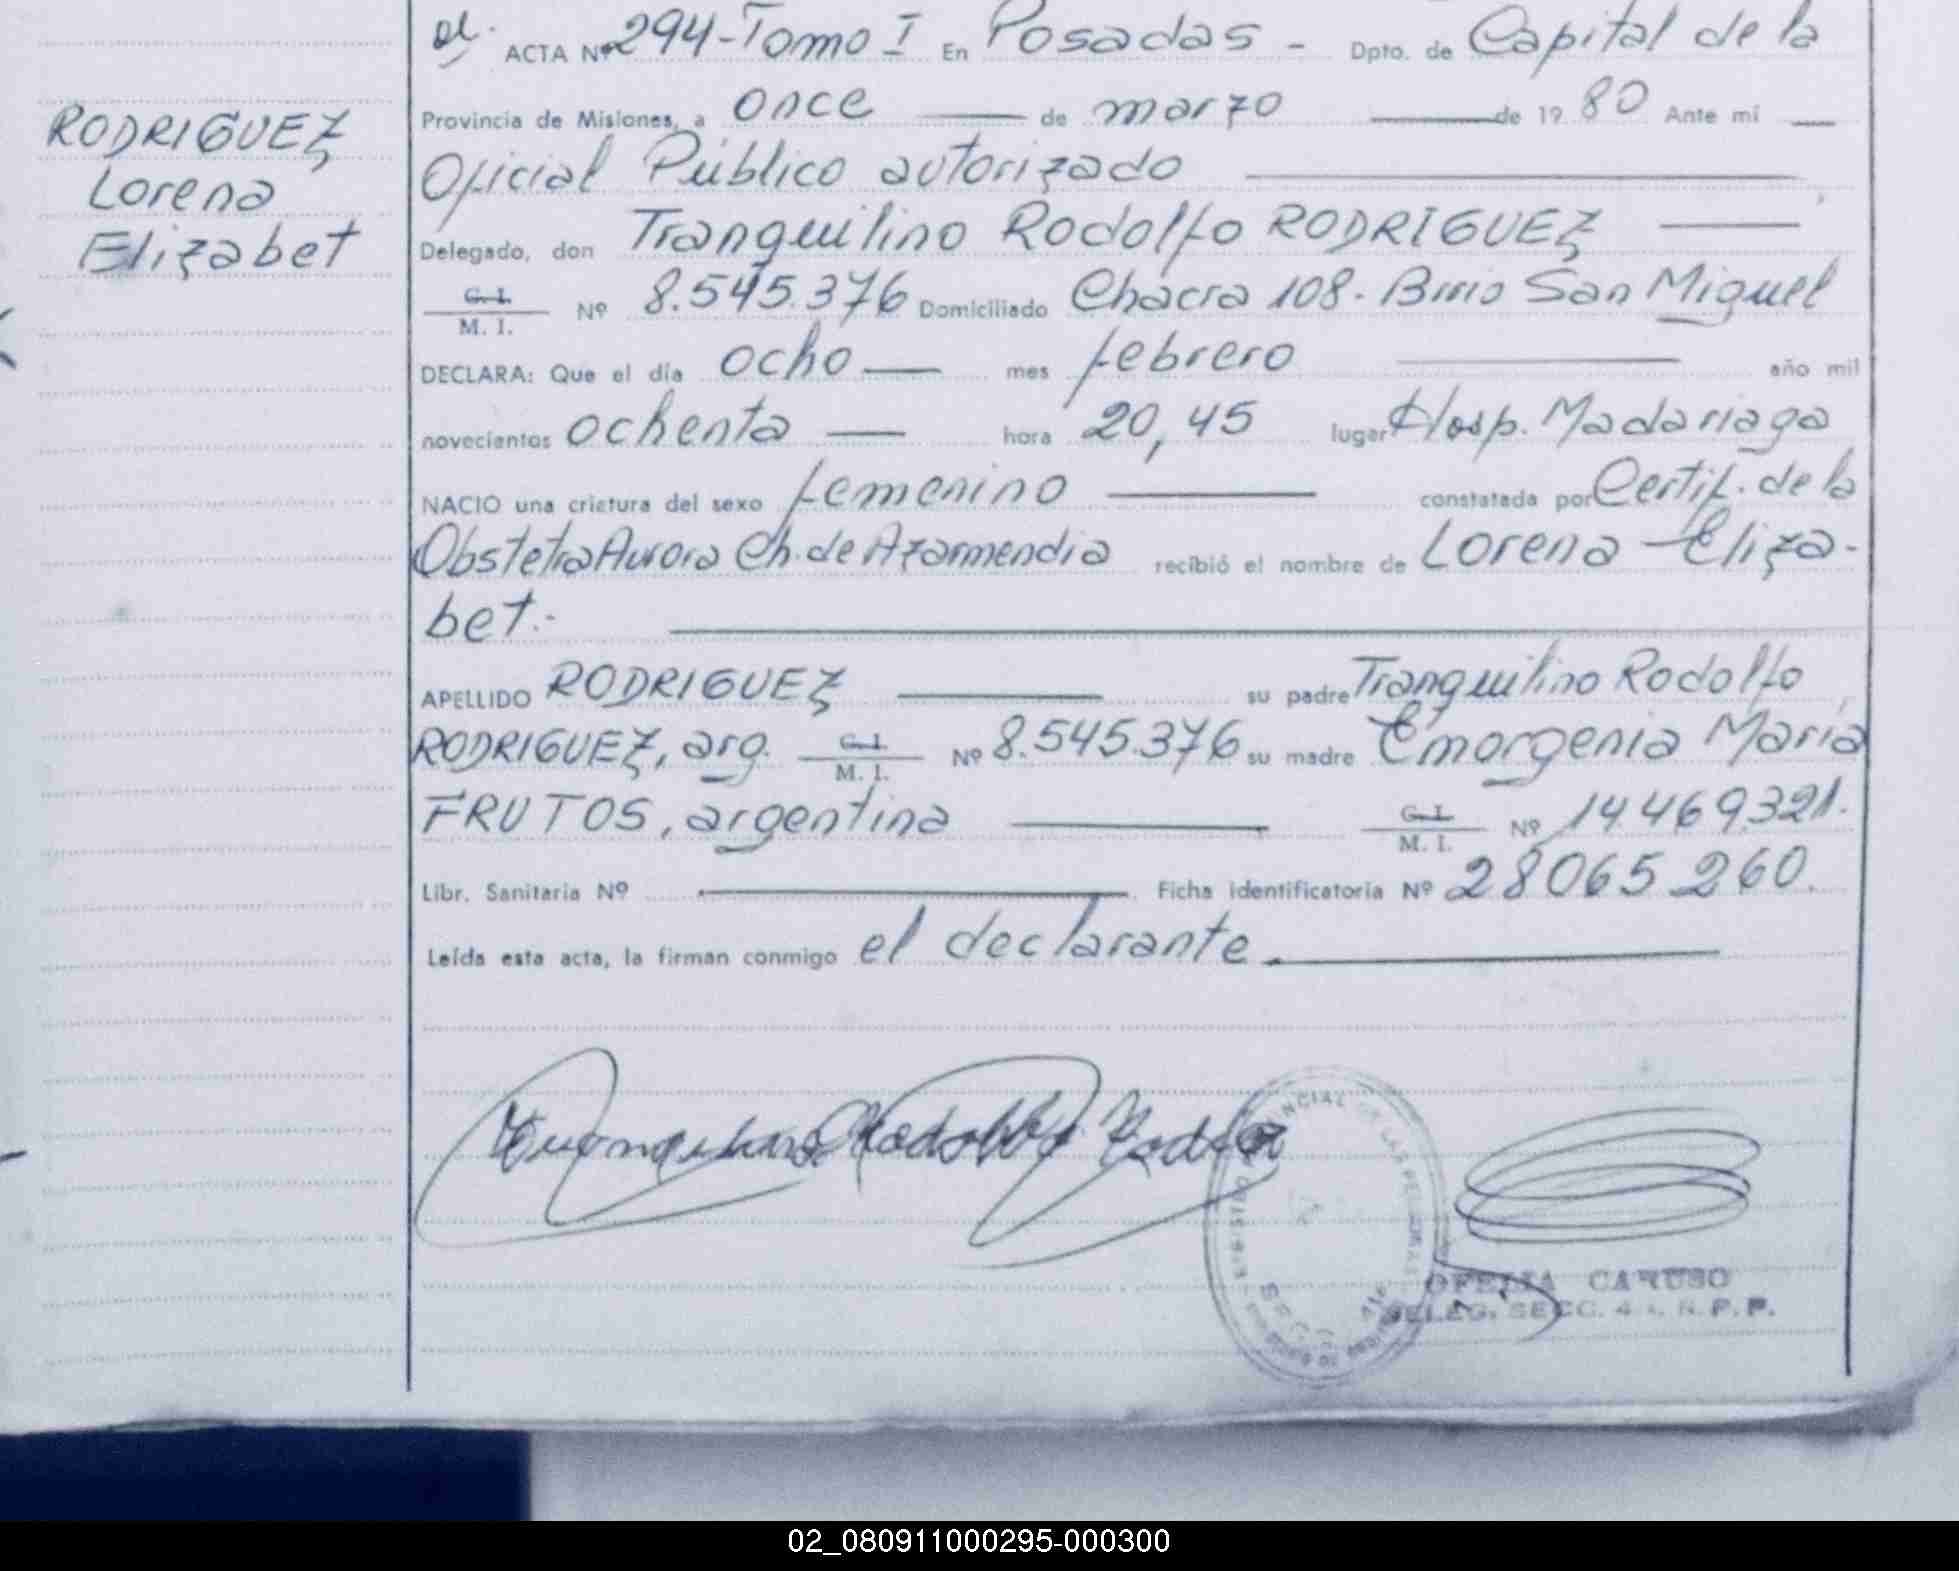 ACTA Nº 294-Tomo I En Posadas - Dpto. de Capital de la
Provincia de Misiones, a once de marzo de 19 80 Ante mí
Oficial Público autorizado
Delegado, don Tranquilino Rodolfo RODRIGUEZ
C. I.
M. I. Nº 8.545.376 Domiciliado Chacra 108 - Brrio San Miguel
DECLARA: Que el día ocho mes febrero año mil
novecientos ochenta hora 20,45 lugar Hosp. Madariaga
NACIO una criatura del sexo femenino constatada por Certif. de la
Obstetra Aurora Ch. de Azarmendia recibió el nombre de Lorena Eliza-
bet.-
APELLIDO RODRIGUEZ su padre Tranquilino Rodolfo
RODRIGUEZ, arg. C. I. M. I. Nº 8.545.376 su madre Emorgenia María
FRUTOS, argentina C. I. M. I. Nº 14.469.321.
Libr. Sanitaria Nº Ficha identificatoria Nº 28065260.
Leída esta acta, la firman conmigo el declarante.
RODRIGUEZ
Lorena
Elizabet
OFELIA CARUSO
DELEG. SECC. 4
02_080911000295-000300